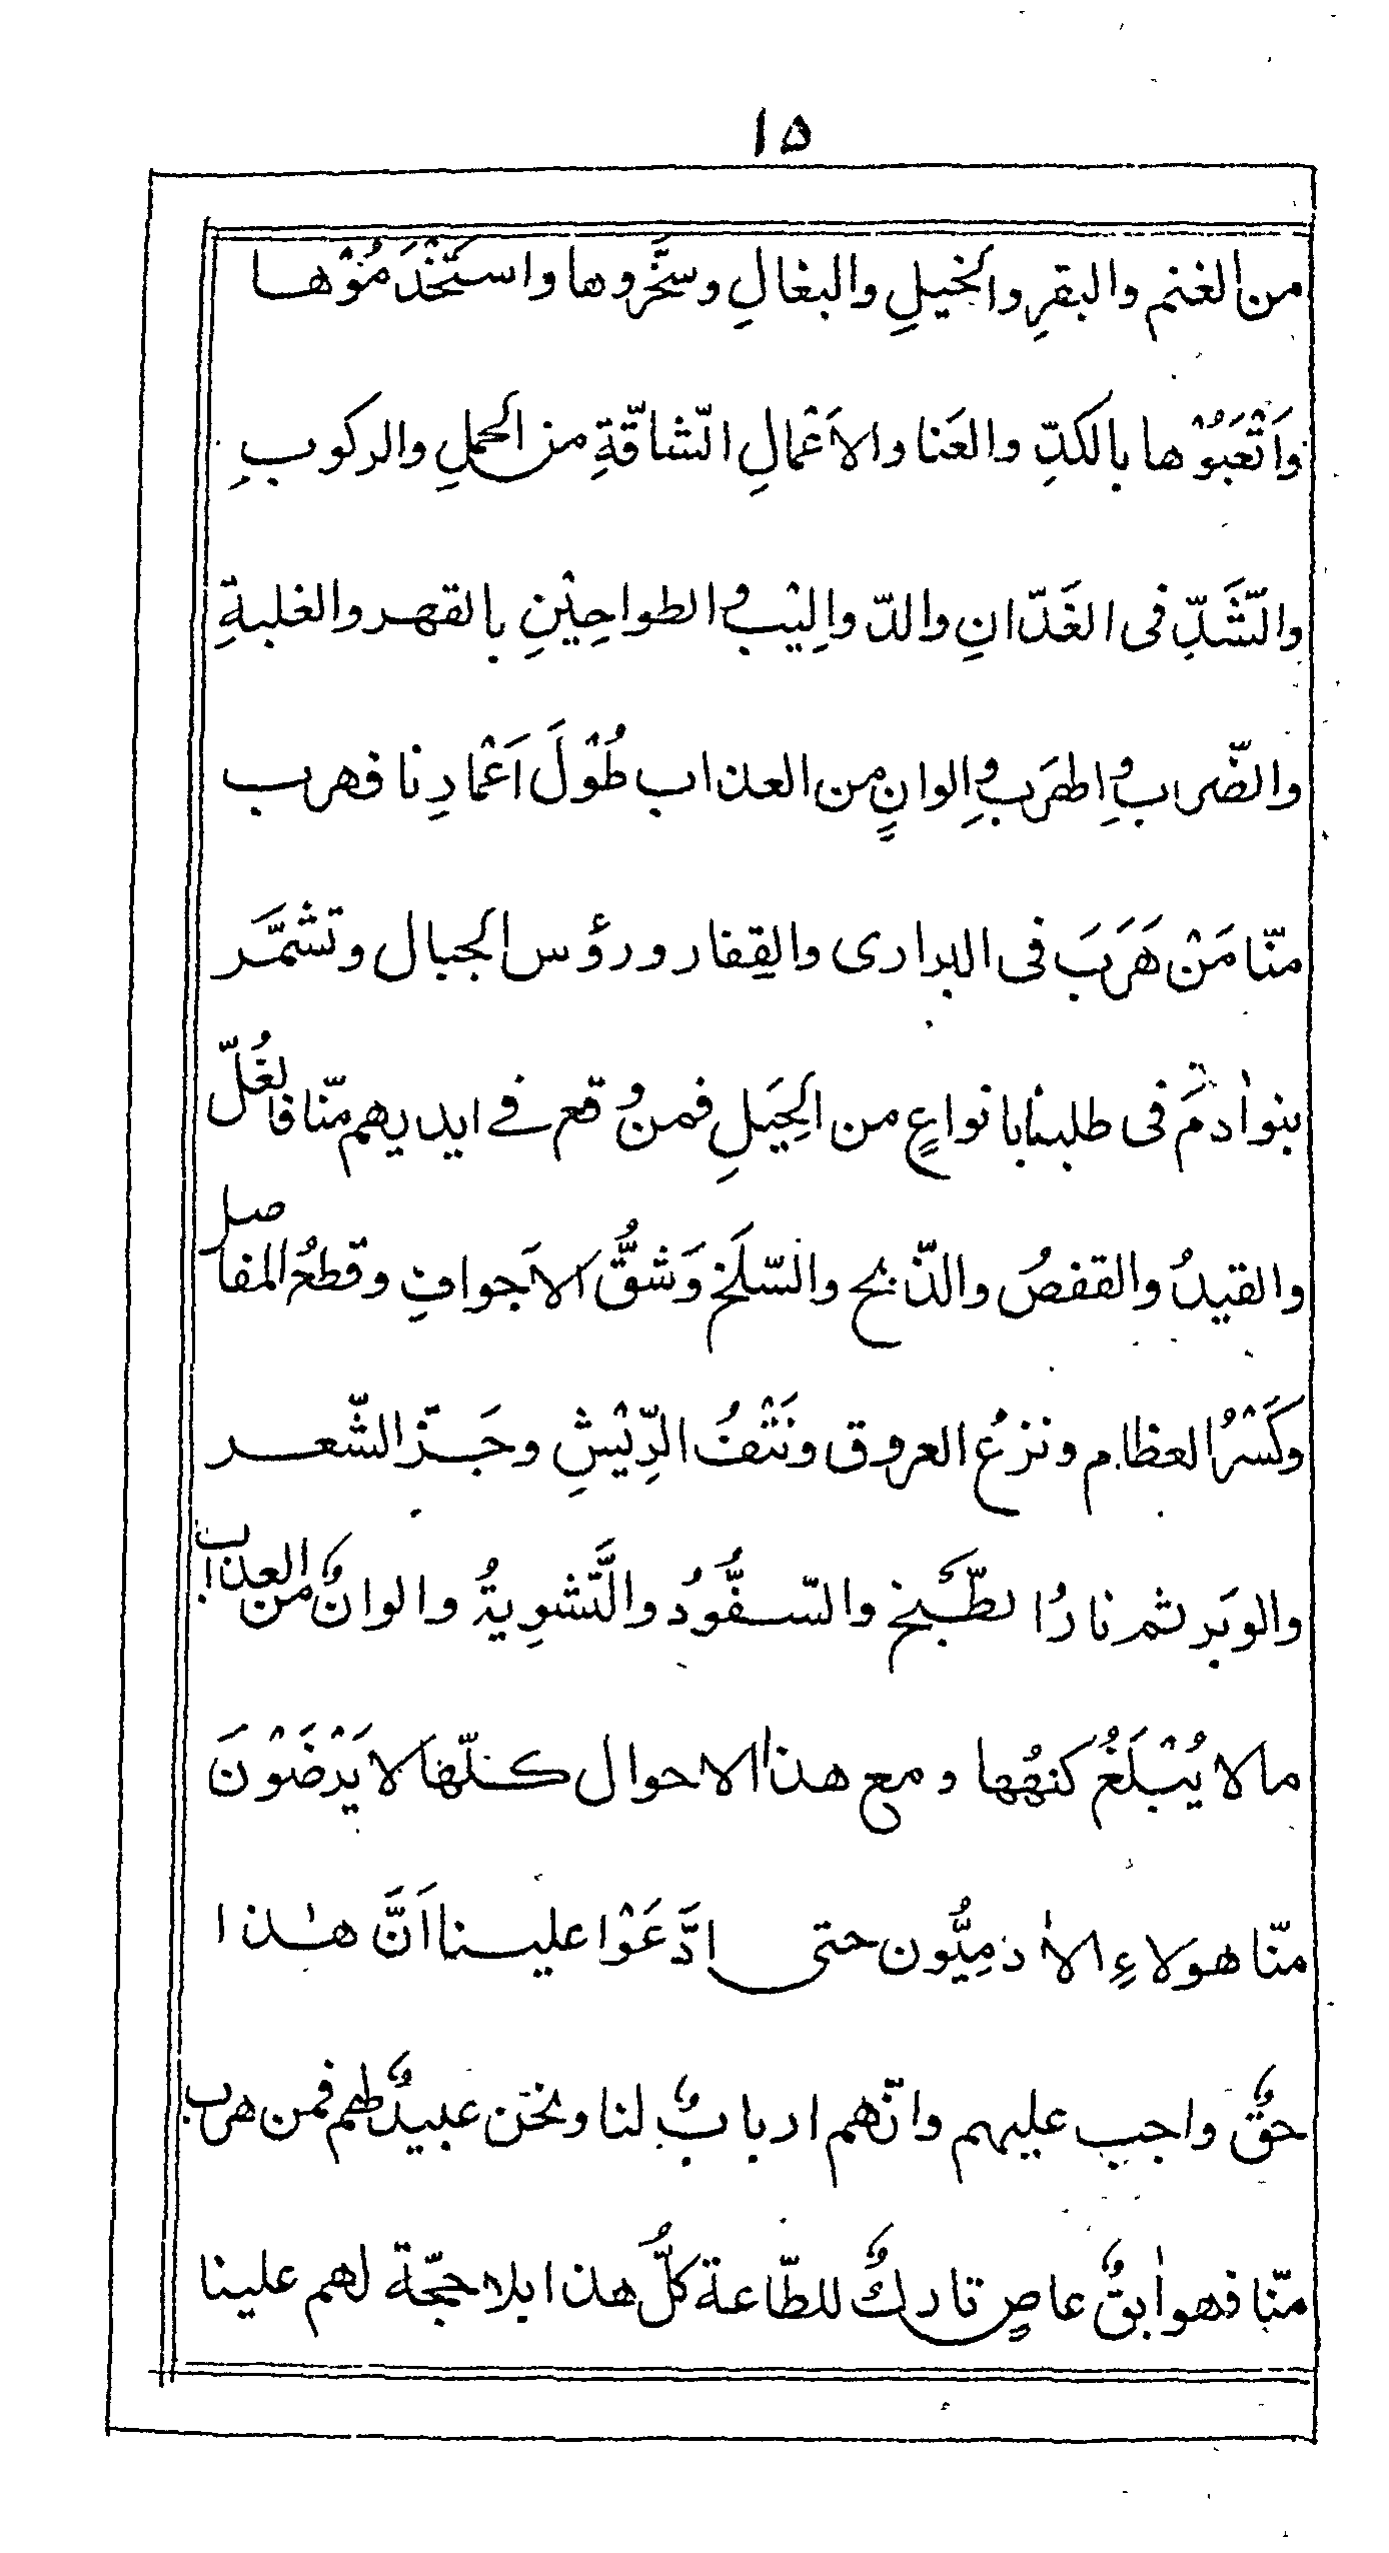 ۱۵
من الغنم والبقرِ والخيلِ والبغالِ وسخَّروها واستَخْدَمُوْها
وَاَتْعَبُوْها بالكدِّ والعَنا والاَعْمالِ الشّاقّةِ من الحملِ والركوبِ
والشَّدِّ فى الغَدّانِ والدّوالِيْبِ والطواحِيْنِ بالقهر والغلبةِ
والضّرابِ واطهَرَبِ والوانٍ من العذاب طُوْلَ اَعْمادِنا فهرب
منّا مَنْ هَرَبَ فى البرارى والقِفار ورؤس الجبال وتشمَّر
بنو اٰدمَ فى طلبنا بانواعٍ من الحِيَلِ فمن وقع فے ايديهم منّا فالغُلّ
والقيدُ والقفصُ والذّبح والسّلَخ وَشقُّ الاَجوافِ وقطعُ المفاصل
وكَسْرُ العظام ونزعُ العروق ونَتْفُ الرِّيْشِ وجَزّ الشّعر
والوبَر ثم نارُ الطّبخ والسّفُّودُ والتَّشوِيةُ والوانٌ من العذاب
مالا يُبْلَغُ كنهُها ومع هذا الاحوال كلّها لا يَرْضَوْنَ
منّا هولاءِ الاٰدمِيُّون حتى ادَّعَوْا علينا اَنَّ هٰذا
حقٌّ واجب عليهم وانّهم اربابٌ لنا ونحن عبيدٌ لهم فمن هرب
منّا فهو اٰبقٌ عاصٍ تاركٌ للطّاعة كلُّ هذا بلا حجّة لهم علينا